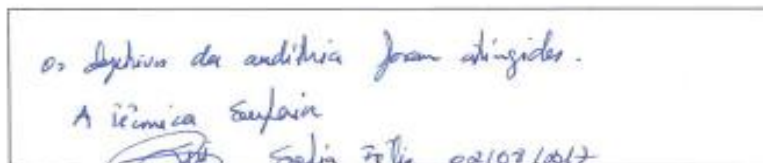 os objetivos da auditoria foram atingidos.
A técnica Superior
02/08/2017